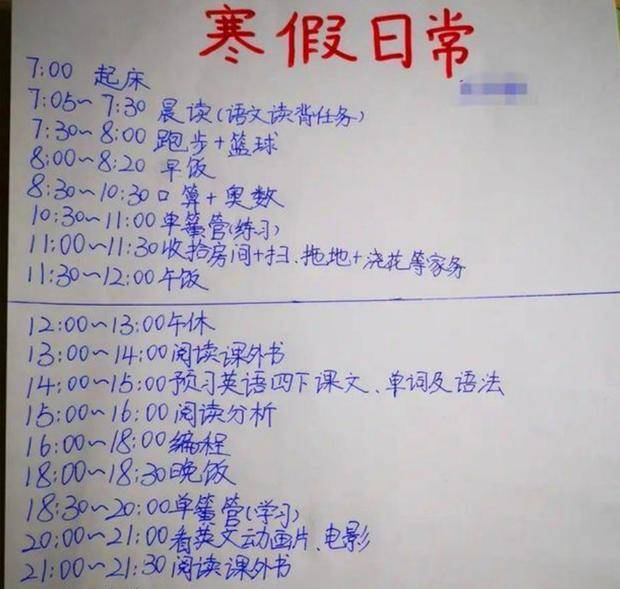 寒假日常
7:00 起床
7:05~7:30 晨读(语文读背任务)
7:30~8:00 跑步+篮球
8:00~8:20 早饭
8:30~10:30 口算+奥数
10:30~11:00 单簧管(练习)
11:00~11:30 收拾房间+扫、拖地+浇花等家务
11:30~12:00 午饭
12:00~13:00 午休
13:00~14:00 阅读课外书
14:00~15:00 预习英语四下课文、单词及语法
15:00~16:00 阅读分析
16:00~18:00 编程
18:00~18:30 晚饭
18:30~20:00 单簧管(学习)
20:00~21:00 看英文动画片、电影
21:00~21:30 阅读课外书